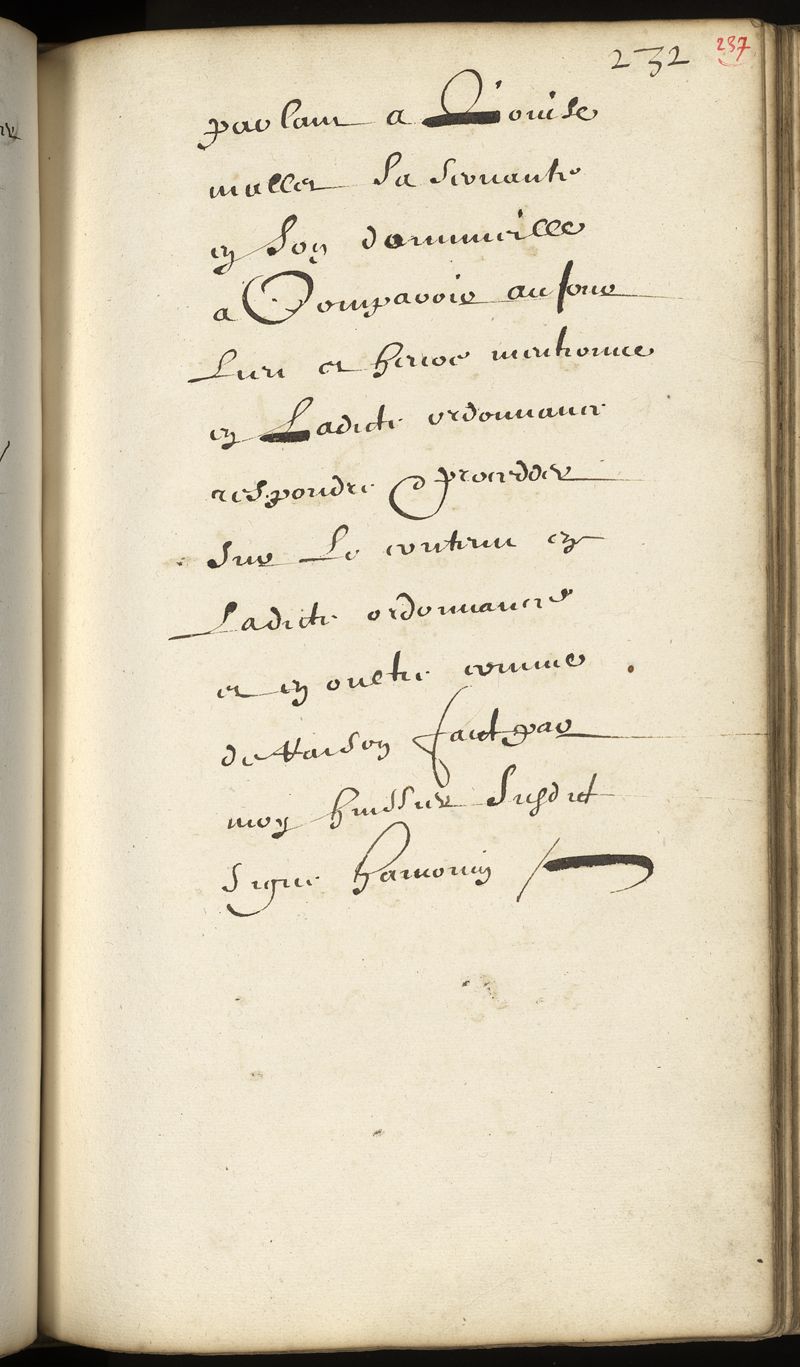 232 237
parlant a Louise
mallet sa servante
en son dommicille
a Comparoir au jour
Lieu et heure mentionne
en Ladicte ordonnance
respondre et procedder
sur Le contenu en
Ladicte ordonnance
et en oultre comme
de Raison faict par
moy huissier susdict
signe hamonin